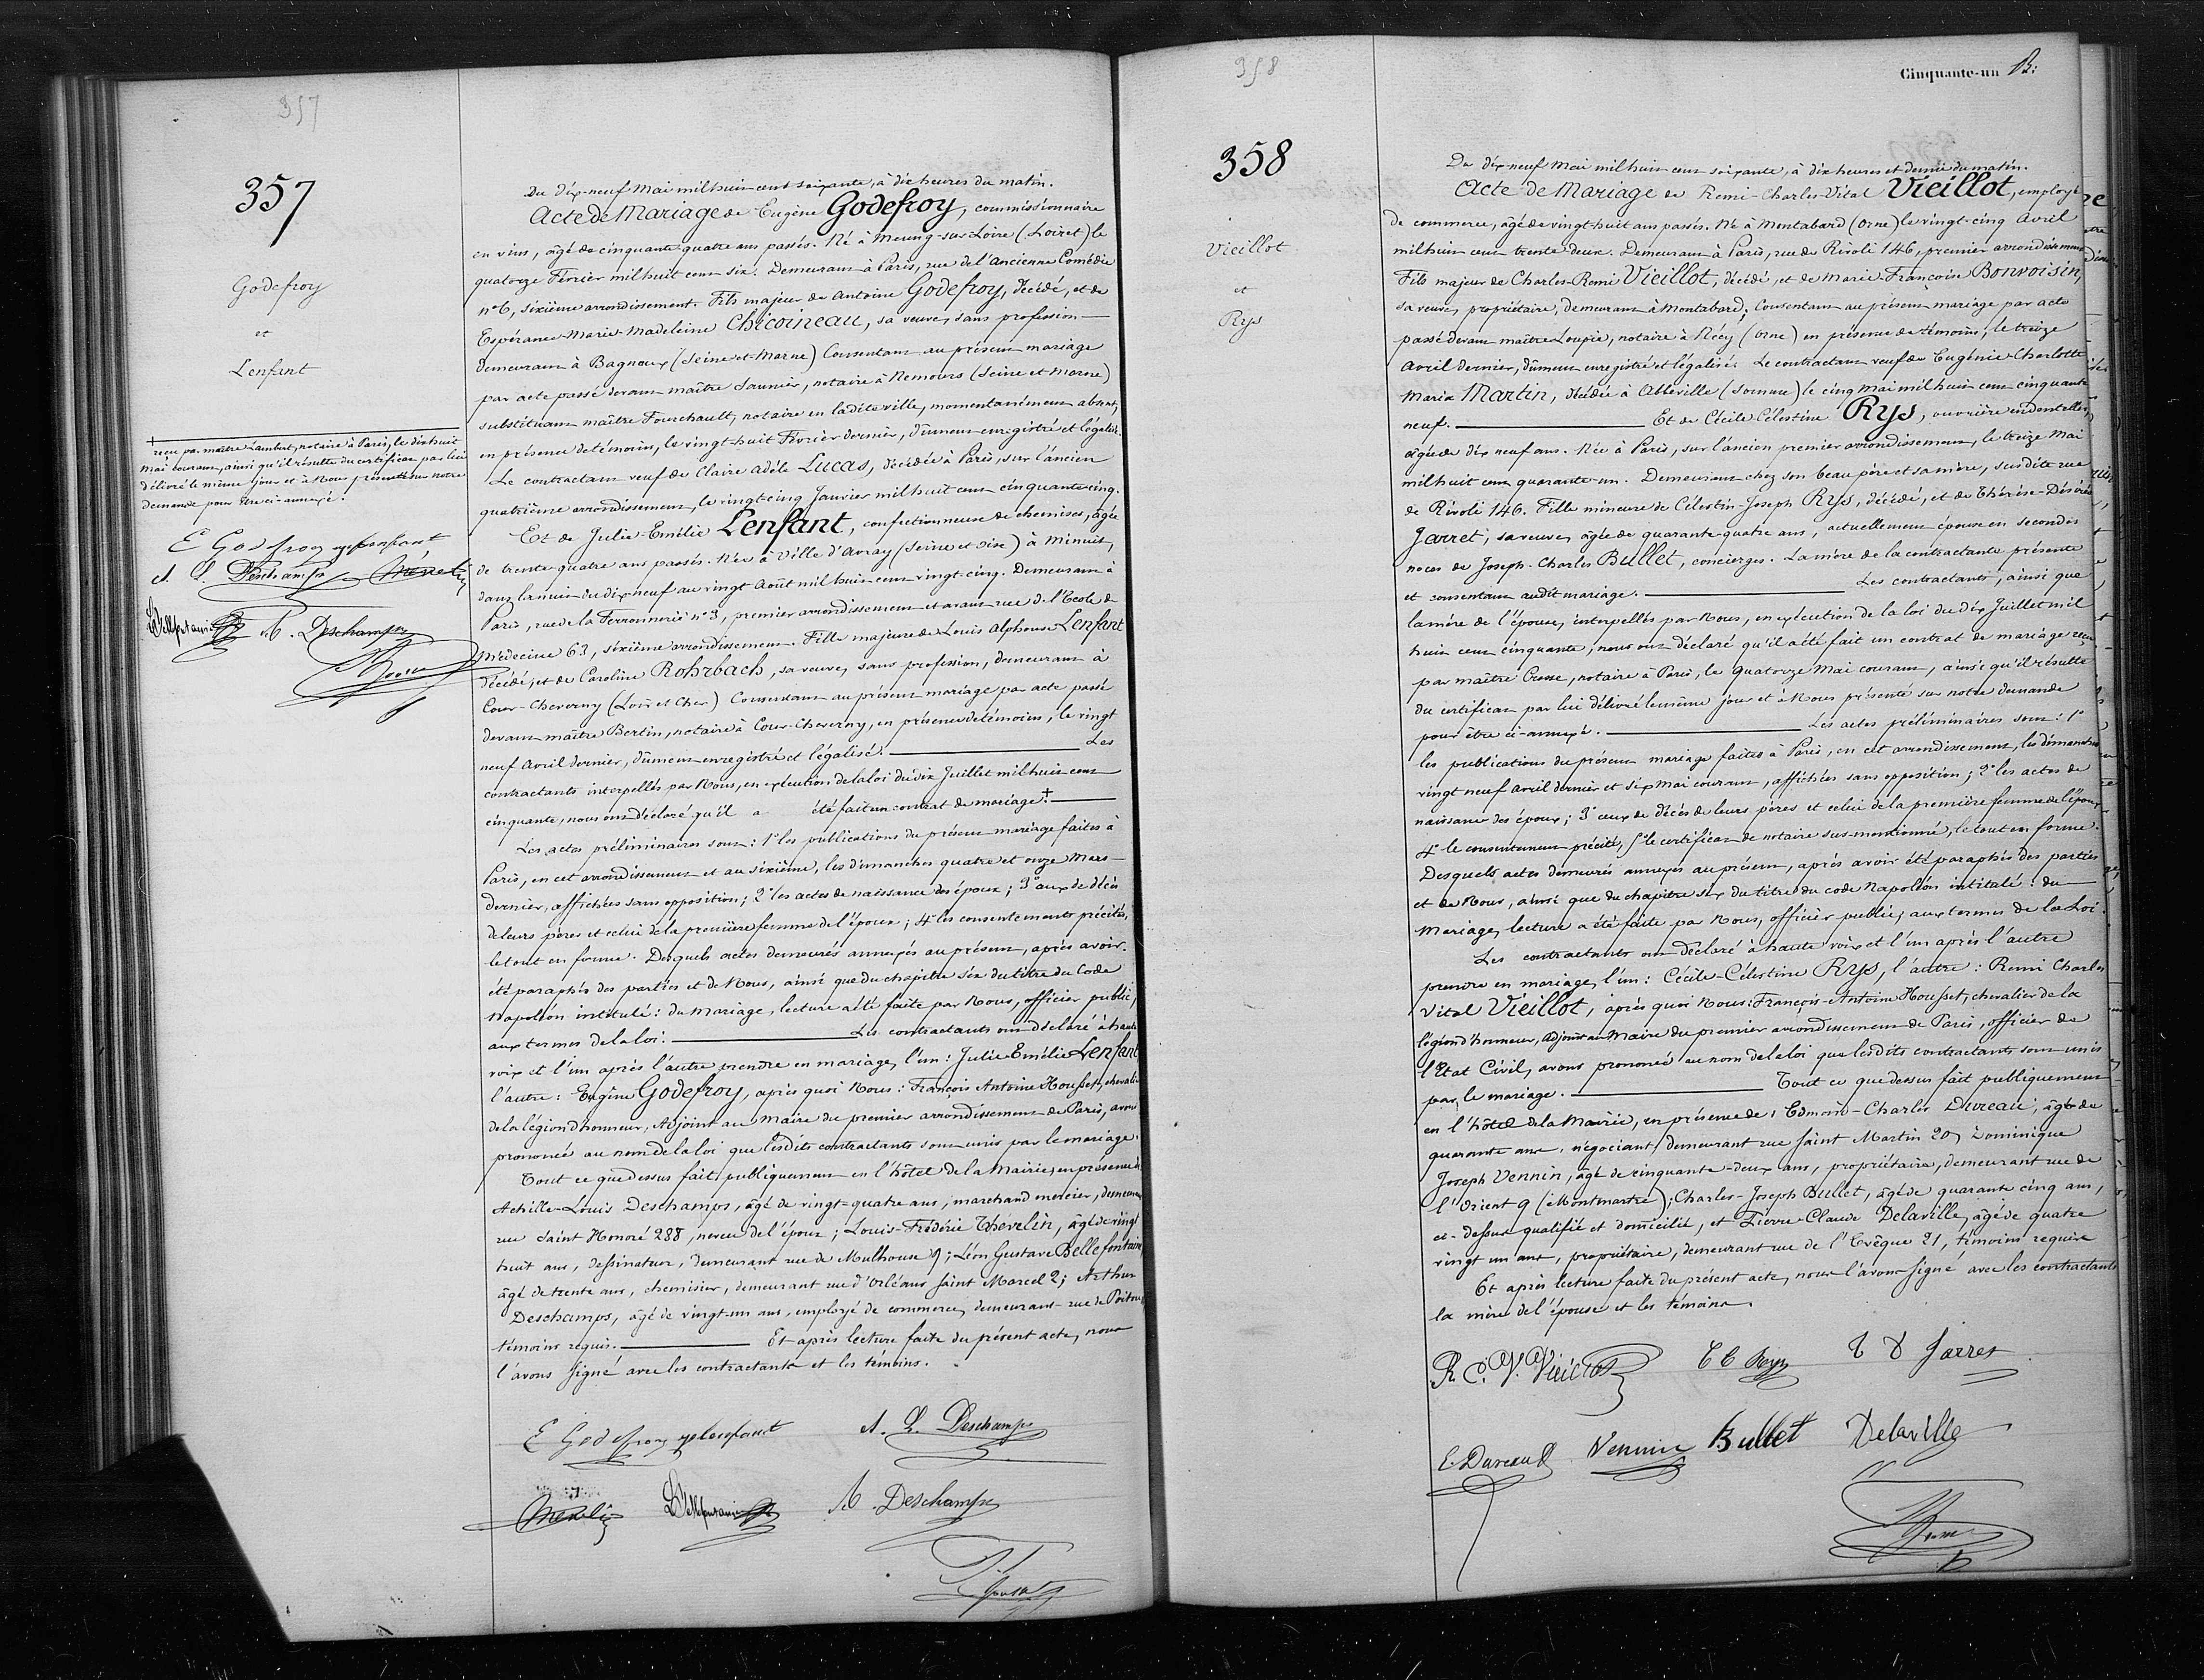 357
357
Godefroy
et
Lenfant
reçu par maître Lambert, notaire à Paris, le dix huit
Mai courant, ainsi qu'il résulte du certificat par lui
délivré le même jour et à Nous présenté sur notre
demande pour être ci-annexé.
E Godefroy j e lenfant
A. L. Deschamps
Bellefontaine A. Deschamps
Du dix-neuf Mai mil huit cent soixante, à dix heures du matin.
Acte de Mariage de Eugène Godefroy, commissionnaire
en vins, âgé de cinquante quatre ans passés. Né à Meung-sur-Loire (Loiret) le
quatorze Février mil huit cent six. Demeurant à Paris, rue de l'Ancienne Comédie
n° 6, sixième arrondissement. Fils majeur de Antoine Godefroy, décédé, et de
Espérance Marie-Madeleine Chicoineau, sa veuve, sans profession
demeurant à Bagneux (Seine et Marne) Consentant au présent mariage
par acte passé devant maître Saunier, notaire à Nemours (Seine et Marne)
substituant maître Fouchault, notaire en ladite ville, momentanément absent,
en présence de témoins, le vingt-huit Février dernier, dûment enregistré et légalisé.
Le contractant veuf de Claire Adèle Lucas, décédée à Paris, sur l'ancien
quatrième arrondissement, le vingt-cinq Janvier mil huit cent cinquante-cinq.
Et de Julie-Emélie Lenfant, confectionneuse de chemises, âgée
de trente-quatre ans passés. Née à Ville d'Avray (Seine et Oise) à Minuit,
dans la nuit du dix neuf au vingt Août mil huit cent vingt-cinq. Demeurant à
Paris, rue de la Ferronnerie n° 3, premier arrondissement et avant rue de l'Ecole de
Médecine 63, sixième arrondissement. Fille majeure de Louis Alphonse Lenfant
décédé, et de Caroline Rohrbach, sa veuve, sans profession, demeurant à
Cour-Cheverny (Loir et Cher) Consentant au présent mariage par acte passé
devant maître Bertin, notaire à Cour-Cheverny, en présence de témoins, le vingt
neuf Avril dernier, dûment enregistré et légalisé. Les
contractants interpellés par Nous, en exécution de la loi du dix Juillet mil huit cent
cinquante, nous ont déclaré qu'il a été fait un contrat de mariage. +
Les actes préliminaires sont: 1° les publications du présent mariage faites à
Paris, en cet arrondissement et au sixième, les dimanches quatre et onze Mars
dernier, affichées sans opposition; 2° les actes de naissance des époux; 3° ceux de décès
de leurs pères et celui de la première femme de l'époux; 4° les consentements précités,
le tout en forme. Desquels actes demeurés annexés au présent, après avoir
été paraphés des parties et de Nous, ainsi que du chapitre six du titre du Code
Napoléon intitulé: du Mariage, lecture a été faite par Nous, officier public,
aux termes de la loi. Les contractants ont déclaré à haute
voix et l'un après l'autre prendre en mariage, l'un: Julie Emélie Lenfant
l'autre: Eugène Godefroy, après quoi Nous: François Antoine Housset, chevalier
de la légion d'honneur, Adjoint au Maire du premier arrondissement de Paris, avons
prononcé au nom de la loi que lesdits contractants sont unis par le mariage.
Tout ce que dessus fait publiquement en l'hôtel de la Mairie, en présence de
Achille-Louis Deschamps, âgé de vingt-quatre ans, marchand mercier, demeurant
rue Saint Honoré 288, neveu de l'époux; Louis-Frédéric Thévelin, âgé de vingt
huit ans, dessinateur, demeurant rue de Mulhouse 9; Léon Gustave Bellefontaine
âgé de trente ans, chemisier, demeurant rue d'Orléans Saint Marcel 2; Arthur
Deschamps, âgé de vingt-un ans, employé de commerce, demeurant rue de Poitou
témoins requis. Et après lecture faite du présent acte, nous
l'avons signé avec les contractants et les témoins.
E Godefroy j e lenfant A. L. Deschamps
Bellefontaine A. Deschamps
358
Cinquante-un
358
Vieillot
et
Rys
Du dix-neuf Mai mil huit cent soixante, à dix heures et demie du matin.
Acte de Mariage de Remi-Charles-Vital Vieillot, employé
de commerce, âgé de vingt-huit ans passés. Né à Montabard (Orne) le vingt-cinq Avril
mil huit cent trente-deux. Demeurant à Paris, rue de Rivoli 146, premier arrondissement
Fils majeur de Charles-Remi Vieillot, décédé, et de Marie-Françoise Bonvoisin,
sa veuve, propriétaire, demeurant à Montabard, Consentant au présent mariage par acte
passé devant maître Loupie, notaire à Nécy (Orne) en présence de témoins, le treize
Avril dernier, dûment enregistré et légalisé. Le contractant veuf de Eugénie Charlotte
Maria Martin, décédée à Abbeville (Somme) le cinq Mai mil huit cent cinquante
neuf. Et de Cécile Célestine Rys, ouvrière en dentelles,
âgée de dix neuf ans. Née à Paris, sur l'ancien premier arrondissement, le treize Mai
mil huit cent quarante-un. Demeurant chez son beau père et sa mère, susdite rue
de Rivoli 146. Fille mineure de Célestin-Joseph Rys, décédé, et de Thérèse-Désirée
Jarret, sa veuve, âgée de quarante quatre ans, actuellement épouse en secondes
noces de Joseph-Charles Bullet, concierge. La mère de la contractante présente
et consentant audit mariage. Les contractants, ainsi que
la mère de l'épouse, interpellés par Nous, en exécution de la loi du dix Juillet mil
huit cent cinquante, nous ont déclaré qu'il a été fait un contrat de mariage reçu
par maître Crosse, notaire à Paris, le quatorze Mai courant, ainsi qu'il résulte
du certificat par lui délivré le même jour et à Nous présenté sur notre demande
pour être ci-annexé. Les actes préliminaires sont: 1°
les publications du présent mariage faites à Paris, en cet arrondissement, les dimanches
vingt neuf Avril dernier et six Mai courant, affichées sans opposition; 2° les actes de
naissance des époux; 3° ceux de décès de leurs pères et celui de la première femme de l'époux
4° le consentement précité, 5° le certificat de notaire sus-mentionné, le tout en forme.
Desquels actes demeurés annexés au présent, après avoir été paraphés des parties
et de Nous, ainsi que du chapitre six du titre du code Napoléon intitulé: du
Mariage, lecture a été faite par Nous, officier public, aux termes de la Loi.
Les contractants ont déclaré à haute voix et l'un après l'autre
prendre en mariage, l'un: Cécile-Célestine Rys, l'autre: Remi Charles
Vital Vieillot, après quoi Nous: François-Antoine Housset, chevalier de la
légion d'honneur, Adjoint au Maire du premier arrondissement de Paris, officier de
l'Etat Civil, avons prononcé au nom de la loi que lesdits contractants sont unis
par le mariage. Tout ce que dessus fait publiquement
en l'hôtel de la Mairie, en présence de: Edmond-Charles Dureau, âgé de
quarante ans, négociant, demeurant rue Saint Martin 20, Dominique
Joseph Vennin, âgé de cinquante-deux ans, propriétaire, demeurant rue de
l'Orient 9 (Montmartre); Charles-Joseph Bullet, âgé de quarante cinq ans,
ci-dessus qualifié et domicilié, et Pierre-Claude Delaville, âgé de quatre
vingt un ans, propriétaire, demeurant rue de l'Evêque 21, témoins requis
Et après lecture faite du présent acte, nous l'avons signé avec les contractants
la mère de l'épouse et les témoins.
R. C. V. Vieillot C C Rys T D Jarret
E. Dureau Vennin Bullet Delaville